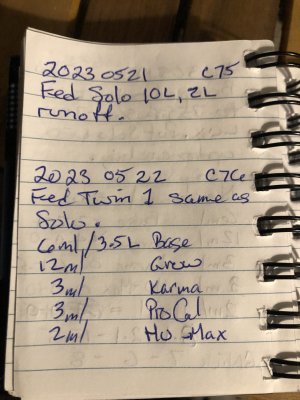 2023 05 21 C75
Fed Solo 10L, 2L
runoff.
2023 05 22 C76
Fed Twin 1 same as
Solo.
6ml/3.5L Base
12ml Grow
3ml Karma
3ml ProCal
2ml Mo Max